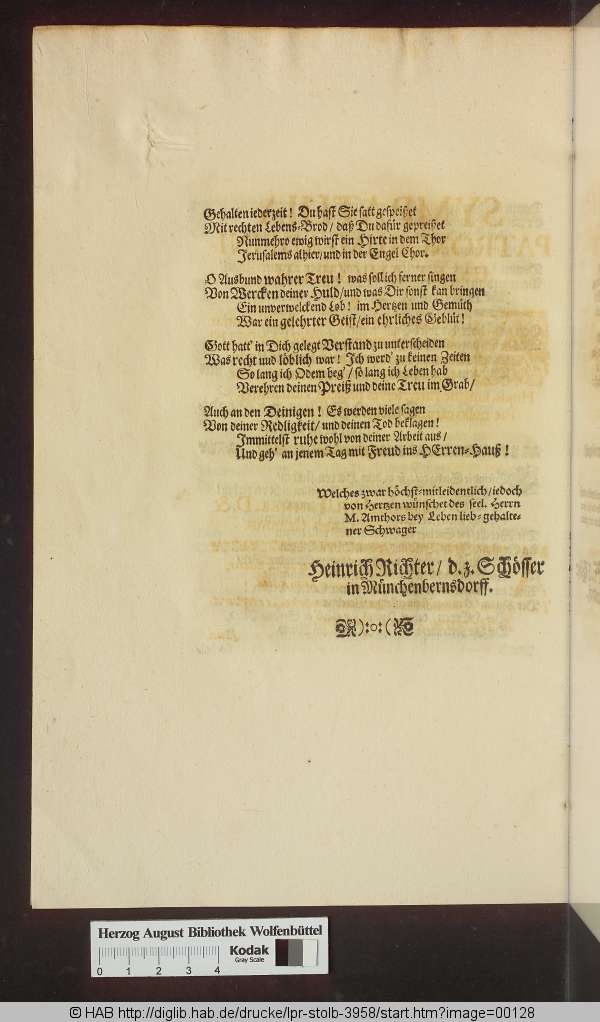 Gehalten iederzeit! Du hast Sie satt gespeißet
Mit rechten Lebens-Brod/ daß Du dafür gepreißet
Nunmehro ewig wirst ein Hirte in dem Thor
Jerusalems alhier/ und in der Engel Chor.
O Ausbund wahrer Treu! was soll ich ferner singen
Von Wercken deiner Huld/ und was Dir sonst kan bringen
Ein unverwelckend Lob! im Hertzen und Gemüth
War ein gelehrter Geist/ ein ehrliches Geblüt!
Gott hatt' in Dich gelegt Verstand zu unterscheiden
Was recht und löblich war! Ich werd' zu keinen Zeiten
So lang ich Odem heg'/ so lang ich Leben hab
Verehren deinen Preiß und deine Treu im Grab/
Auch an den Deinigen! Es werden viele sagen
Von deiner Redligkeit/ und deinen Tod beklagen!
Immittelst ruhe wohl von deiner Arbeit aus/
Und geh' an jenem Tag mit Freud ins HErren-Hauß!
Welches zwar höchst-mitleidentlich/ iedoch
von Hertzen wünschet des seel. Herrn
M. Amthors bey Leben lieb-gehalte-
ner Schwager
Heinrich Richter/ d. z. Schösser
in Münchenbernsdorff.
):o:(
Herzog August Bibliothek Wolfenbüttel
Kodak
Gray Scale
0 1 2 3 4
© HAB http://diglib.hab.de/drucke/lpr-stolb-3958/start.htm?image=00128